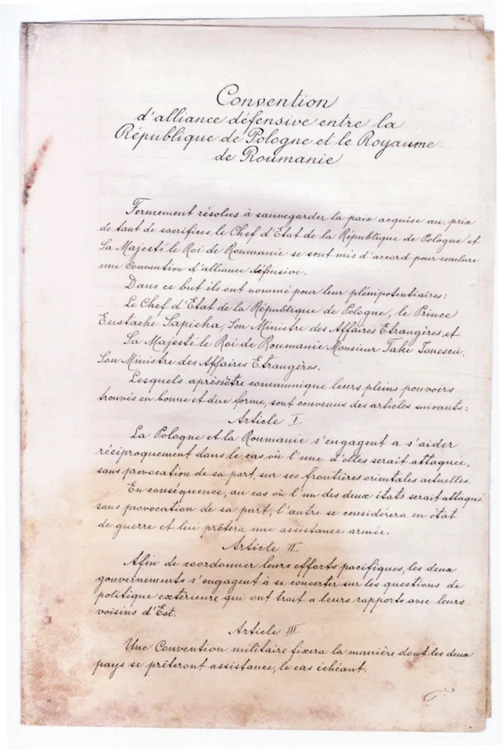 Convention
d'alliance défensive entre la
République de Pologne et le Royaume
de Roumanie
Fermement résolus à sauvegarder la paix acquise au prix
de tant de sacrifices, le Chef d'Etat de la République de Pologne et
Sa Majesté le Roi de Roumanie se sont mis d'accord pour conclure
une Convention d'alliance défensive.
Dans ce but ils ont nommé pour leur plénipotentiaires:
Le Chef d'Etat de la République de Pologne, le Prince
Eustache Sapieha, Son Ministre des Affaires Etrangères, et
Sa Majesté le Roi de Roumanie Monsieur Take Ionescu,
Son Ministre des Affaires Etrangères.
Lesquels après s'être communiqué leurs pleins pouvoirs
trouvés en bonne et due forme, sont convenus des articles suivants:
Article I
La Pologne et la Roumanie s'engagent a s'aider
réciproquement dans le cas, où l'une d'elles serait attaquée,
sans provocation de sa part, sur ses frontières orientales actuelles.
En conséquence, au cas où l'un des deux états serait attaqué
sans provocation de sa part, l'autre se considérera en état
de guerre et lui prêtera une assistance armée.
Article II
Afin de coordonner leurs efforts pacifiques, les deux
gouvernements s'engagent à se concerter sur les questions de
politique extérieure qui ont trait a leurs rapports avec leurs
voisins d'Est.
Article III
Une Convention militaire fixera la manière dont les deux
pays se prêteront assistance, le cas échéant.